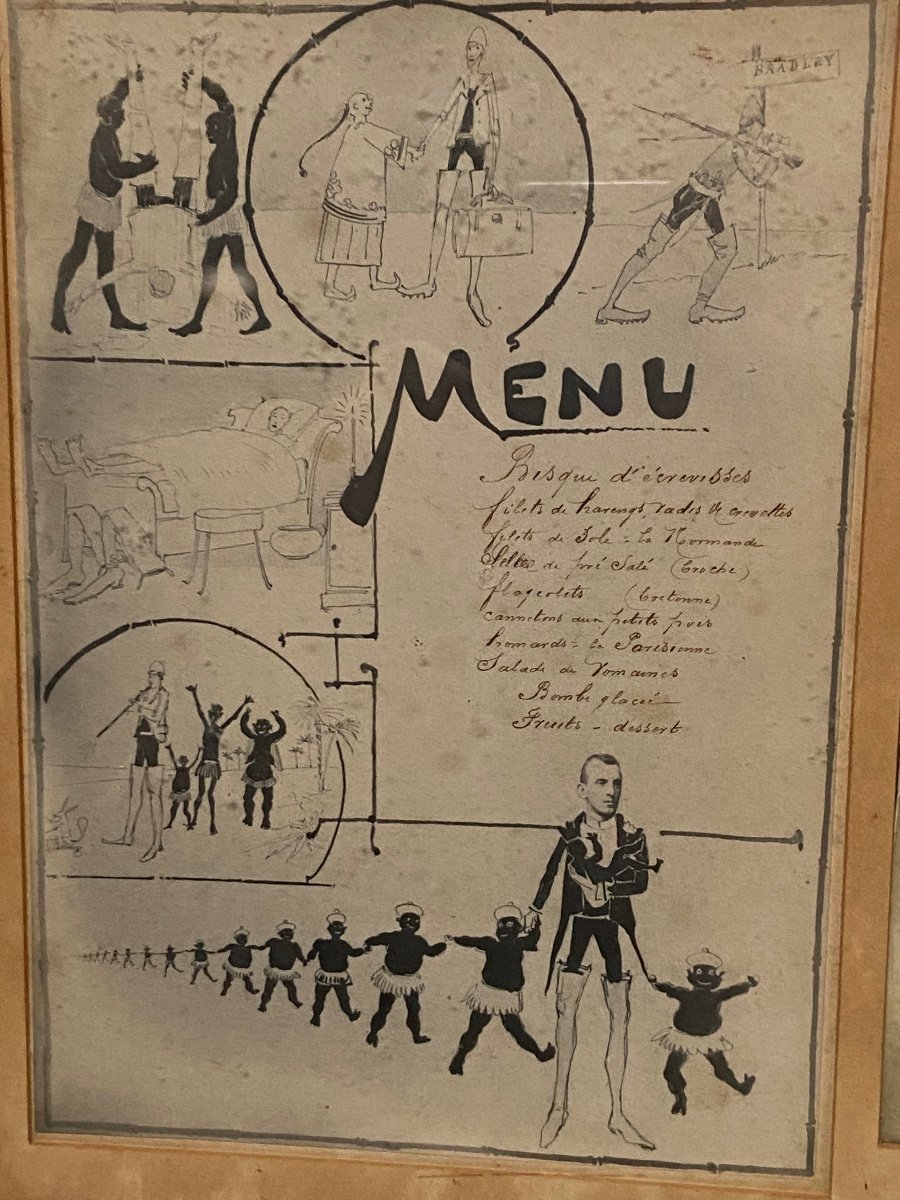 BRADLEY
MENU
Bisque d'écrevisses
filets de harengs, rades & crevettes
filets de Sole - la Normande
Selle de pré Salé (Broche)
flageolets (bretonne)
cannetons aux petits pois
homards - la Parisienne
Salade de romaines
Bombe glacée
Fruits - dessert